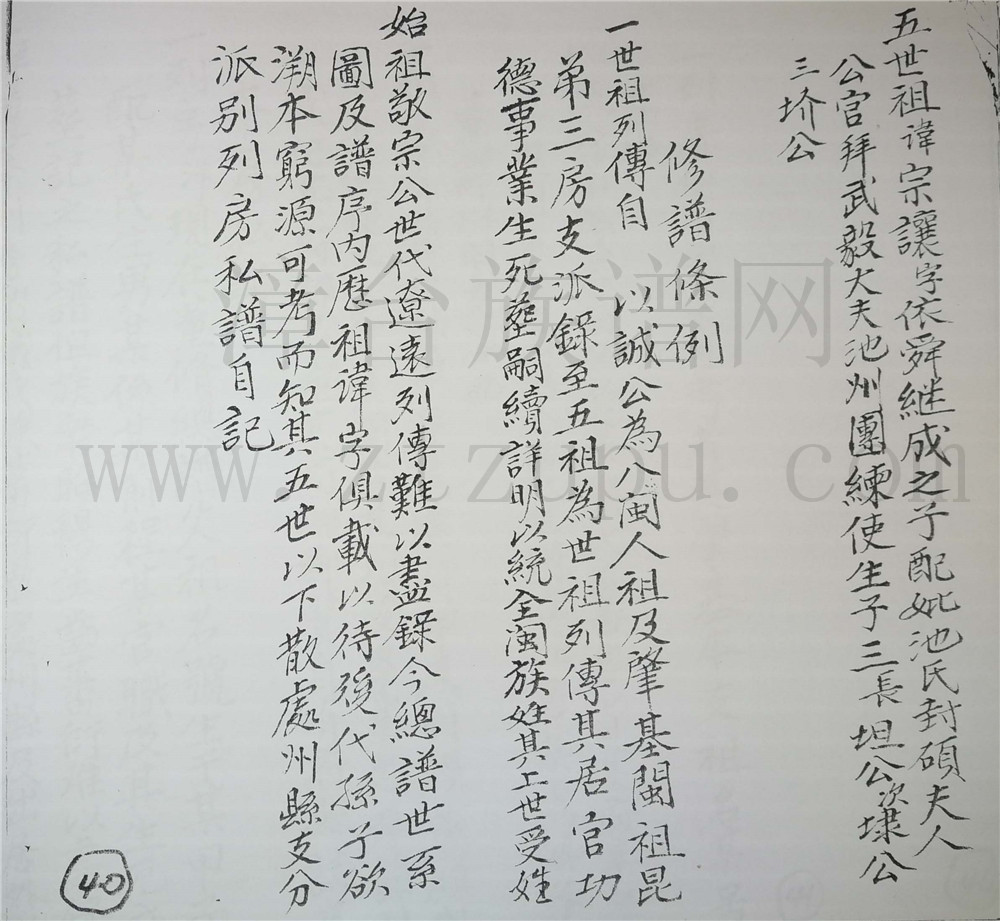 五世祖諱宗讓字依舜継成之子配妣池氏封碩夫人
公官拜武毅大夫池州團練使生子三長坦公次埭公
三圿公
修譜條例
一世祖列傳自 以誠公為八閩人祖及肇基閩祖昆
弟三房支派錄至五祖為世祖列傳其居官功
德事業生死塟嗣續詳明以統全閩族姓其上世受姓
始祖敬宗公世代遼遠列傳難以盡錄今總譜世系
圖及譜序內歷祖諱字俱載以待後代孫子欲
溯本窮源可考而知其五世以下散處州縣支分
派別列房私譜自記
漳台族谱网
www.zzzupu.com
40